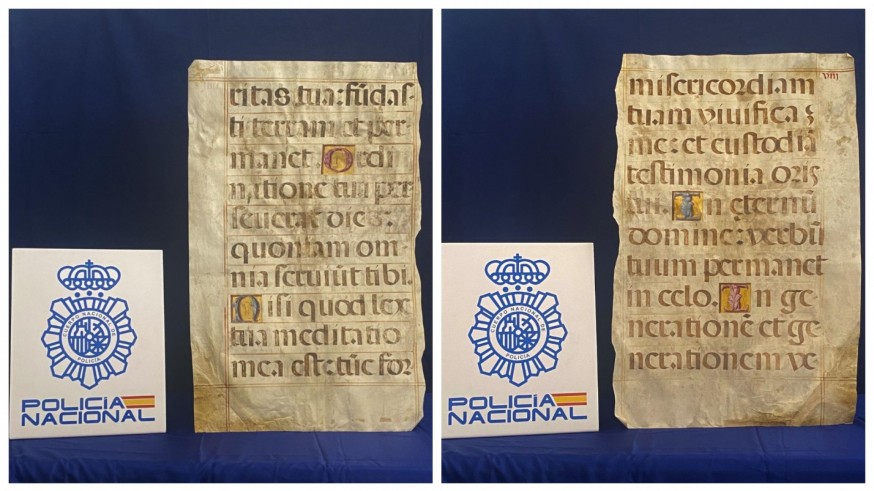 ritas tua: fūdas-
ti terram et per-
manet. Ordi
natione tua per
seuerat dies:
quoniam om-
nia seruiūt tibi.
Nisi quod lex
tua meditatio
mea est: tūc for
CUERPO NACIONAL DE
POLICÍA
POLICÍA
NACIONAL
misericordiam
tuam viuifica
me: et custodiā
testimonia oris
tui. In eternū
domine: verbū
tuum permanet
in celo. In ge
neratione et ge
nerationem ve
CUERPO NACIONAL DE
POLICÍA
POLICÍA
NACIONAL